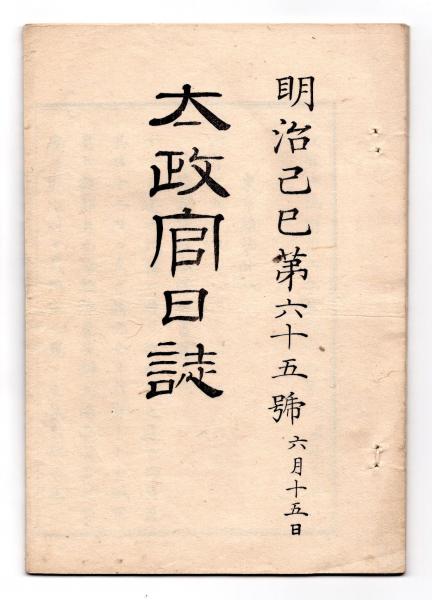 明治己巳第六十五號 六月十五日
太政官日誌